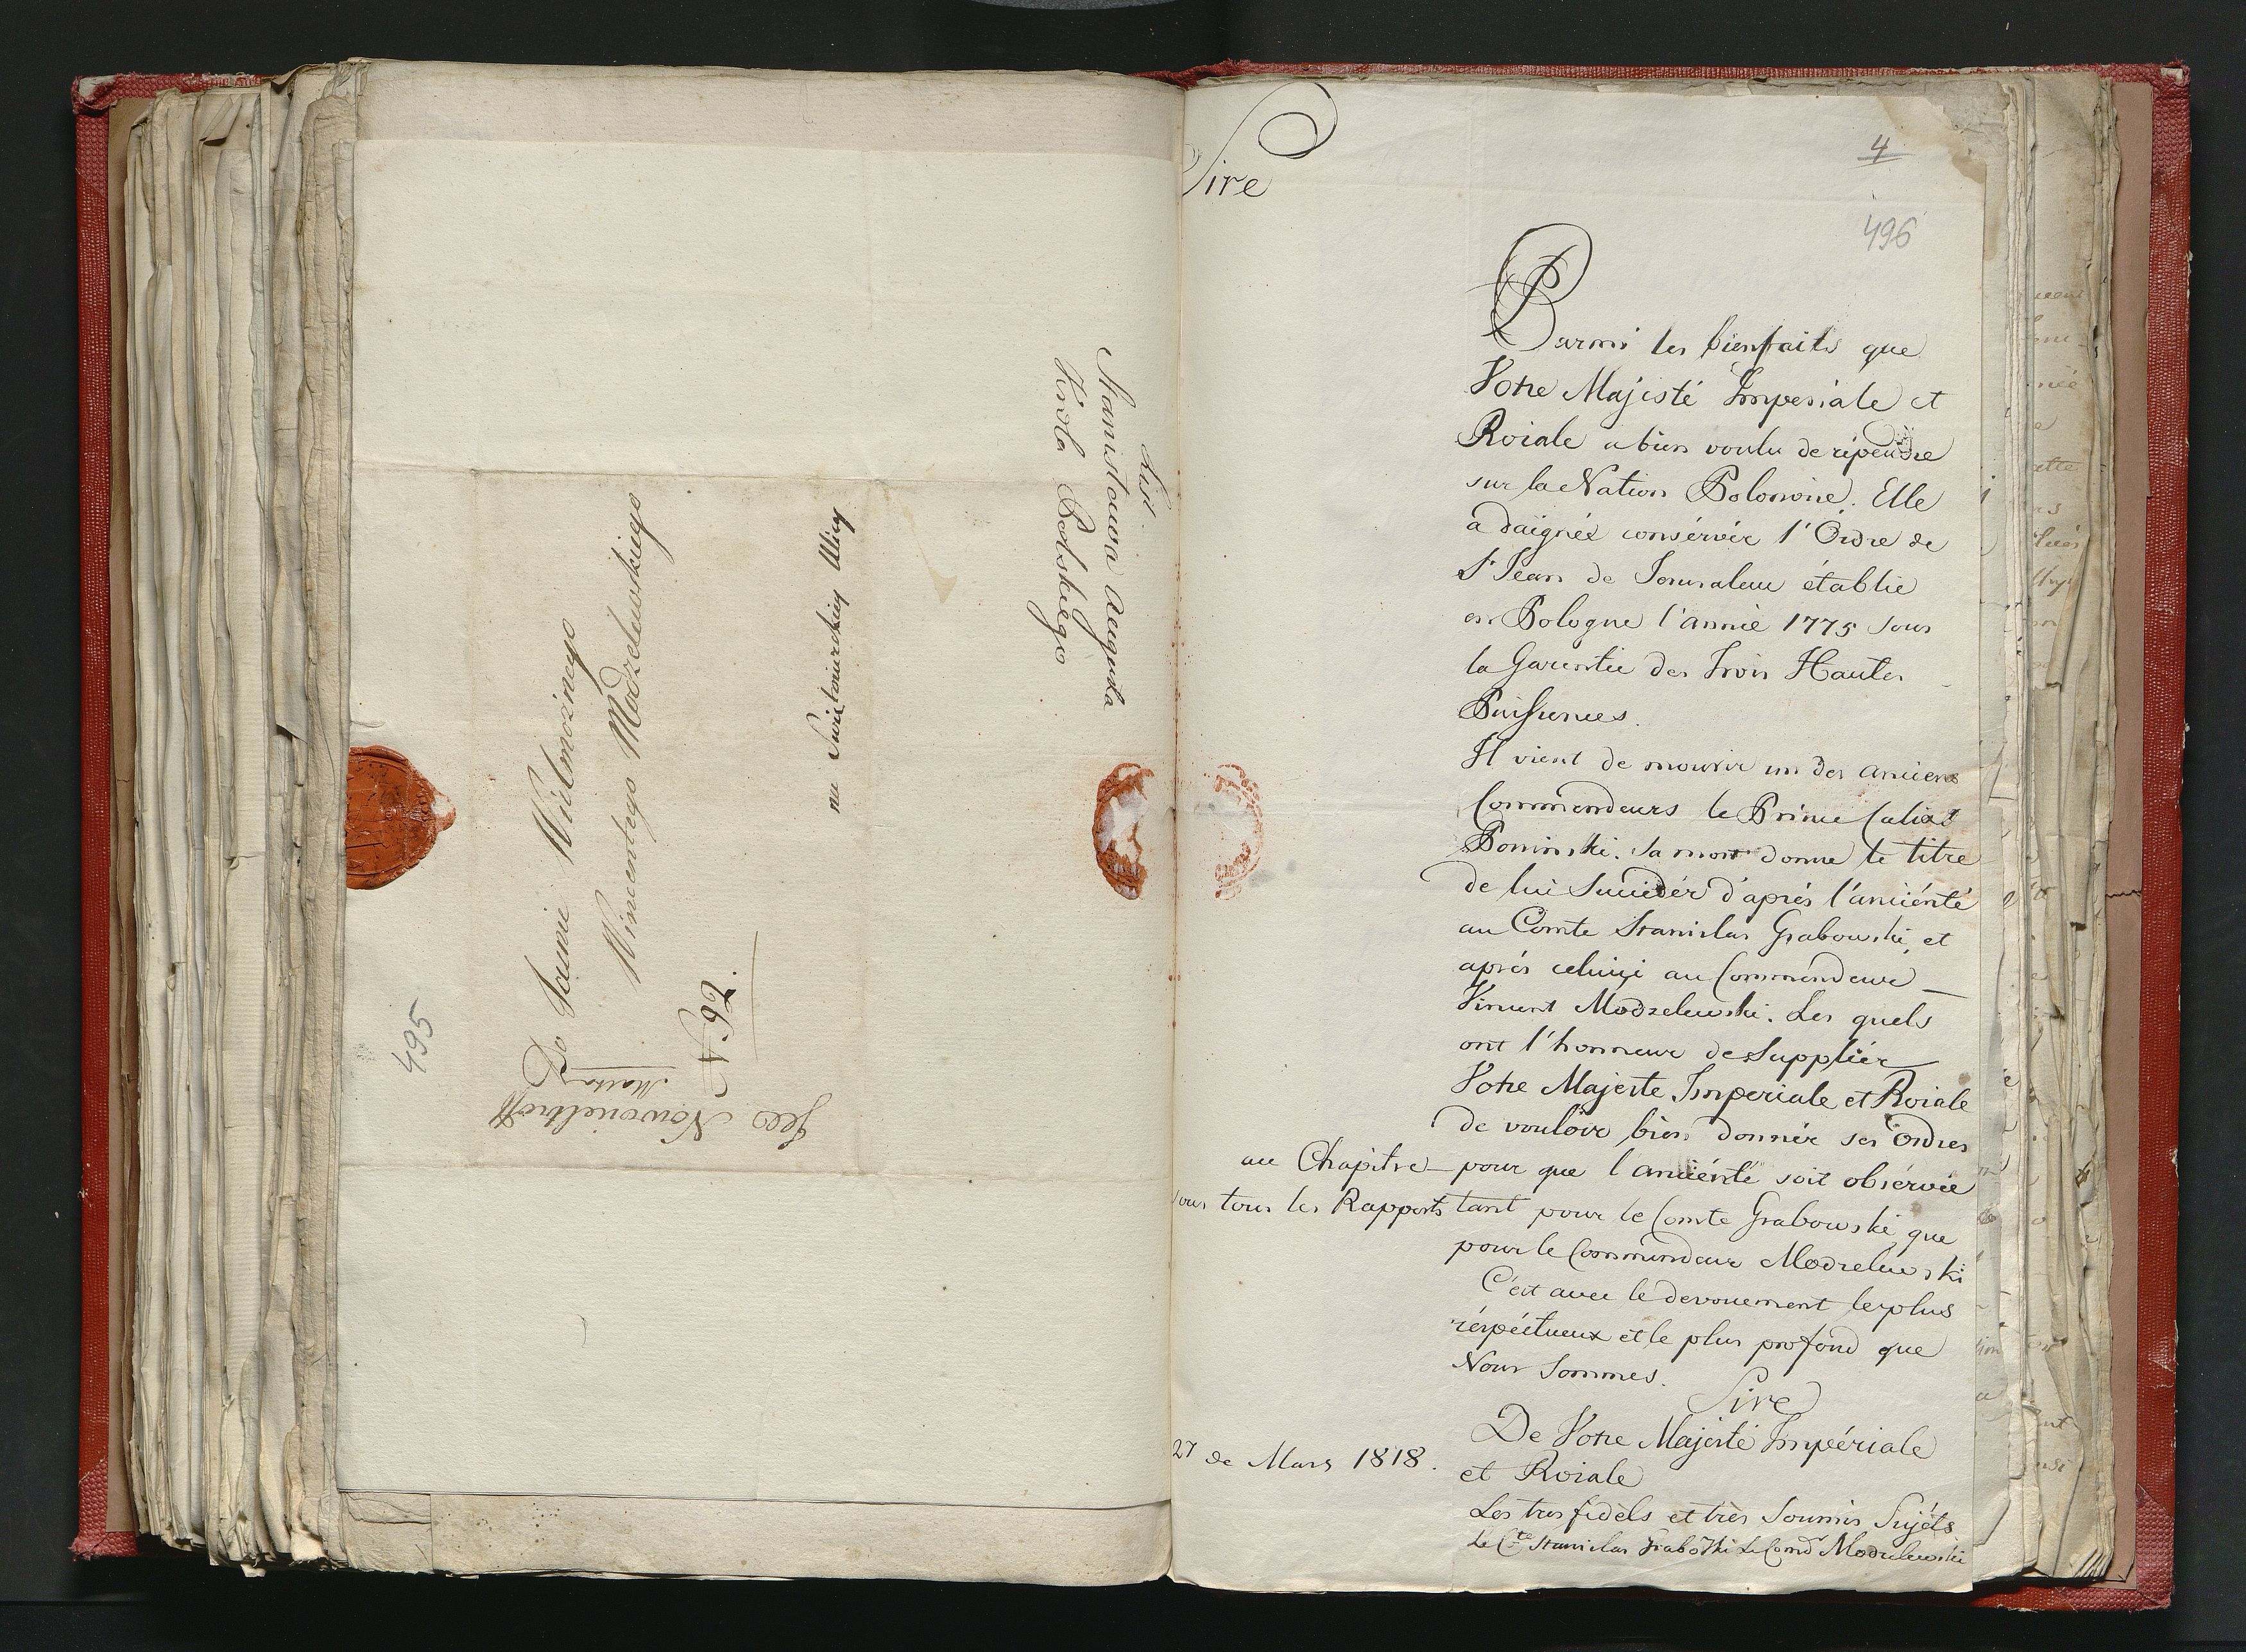 495
Do Jaśnie Wielmożnego
Wincentego Modzelewskiego
N. 92.
na Swiętoiurskiey Ulicy
List
Stanisława Augusta
Króla Polskiego
4
496
Sire
Parmi les bienfaits que
Votre Majésté Imperiale et
Roiale a bien voulu de répendre
sur la Nation Polonoise. Elle
a daignéz consérvér l'Ordre de
St Jean de Jerusalem établie
en Pologne l'année 1775 sous
la Garentie des Trois Hautes
Puissences.
Il vient de mourir un des anciens
Commendeurs le Prince Calixt
Poninski. Sa mort donne le titre
de lui Succédér d'aprés l'anciénté
au Comte Stanislas Grabowski, et
aprés celuiçi au Commendeur
Vincent Modzelewski. Les quels
ont l'honneur de Suppliér
Votre Majeste Imperiale et Roiale
de vouloir bien donnér ses Ordres
au Chapitre pour que l'anciénté soit obsérvée
sous tous les Rapports tant pour le Comte Grabowski que
pour le Commendeur Modzelewski
C'est avec le devouement le plus
réspéctueux et le plus profond que
Nous Sommes.
Sire
De Votre Majesté Impériale
et Roiale
27 de Mars 1818.
Les tres fidèls et très Soumis Sujéts
Le Cte Stanislas Grabowski Le Comdr Modzelewski